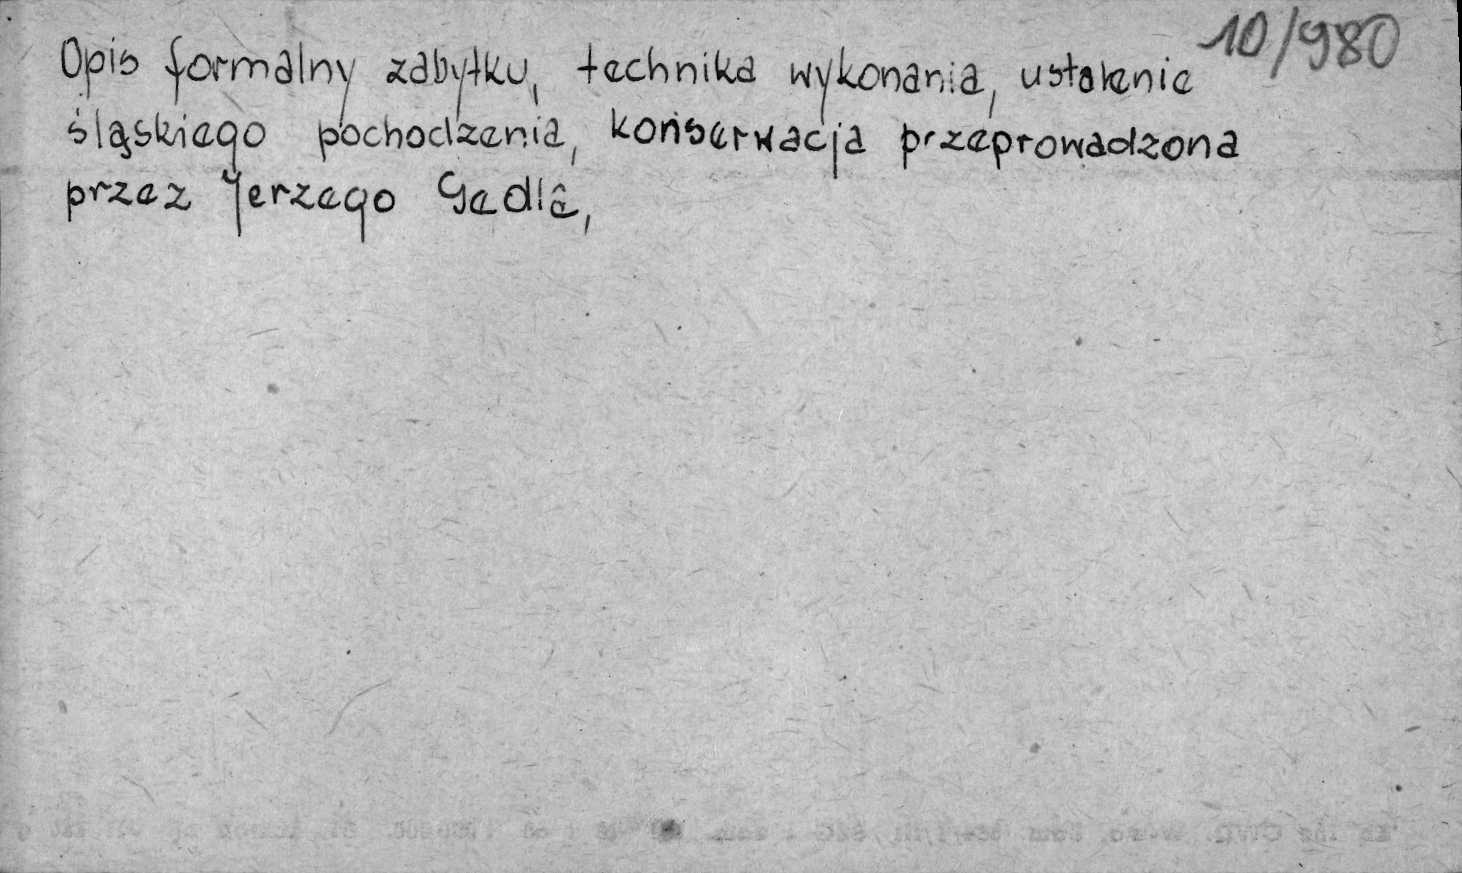 10/980
Opis formalny zabytku, technika wykonania, ustalenie
śląskiego pochodzenia, konserwacja przeprowadzona
przez Jerzego Gadla,